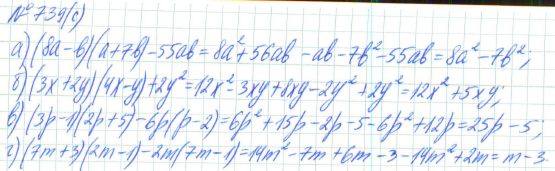 № 739(с)
а) (8a-b)(a+7b)-55ab=8a²+56ab-ab-7b²-55ab=8a²-7b²;
б) (3x+2y)(4x-y)+2y²=12x²-3xy+8xy-2y²+2y²=12x²+5xy;
в) (3p-1)(2p+5)-6p(p-2)=6p²+15p-2p-5-6p²+12p=25p-5;
г) (7m+3)(2m-1)-2m(7m-1)=14m²-7m+6m-3-14m²+2m=m-3